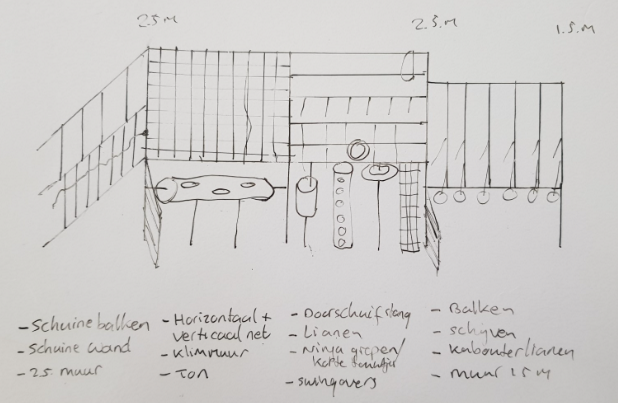 25.M
2.5.M
1.5.M
- Schuine balken
- Schuine wand
- 2.5. muur
- Horizontaal +
verticaal net
- Klimmuur
- Ton
- Doorschuifslang
- Lianen
- Ninja grepen/
korte
- swingovers
- Balken
- schijven
- Kabouterlianen
- muur 1.5 M